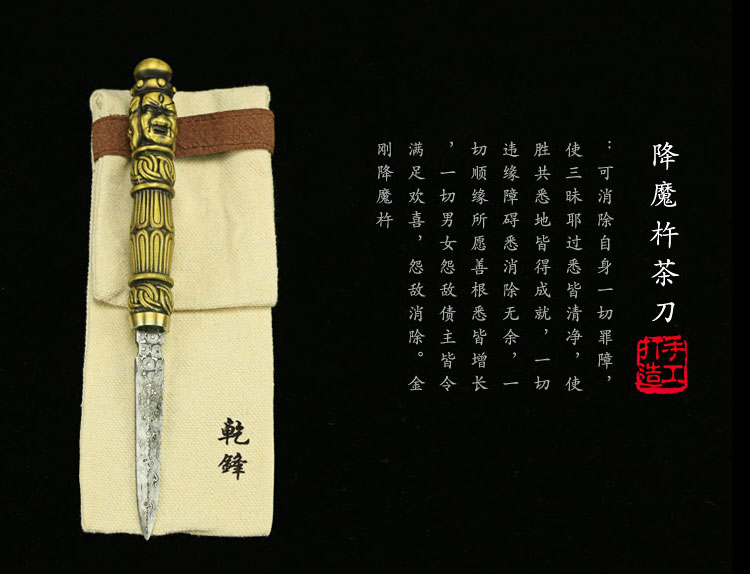 降魔杵茶刀
手工
打造
：可消除自身一切罪障，
使三昧耶过悉皆清净，使
胜共悉地皆得成就，一切
违缘障碍悉消除无余，一
切顺缘所愿善根悉皆增长
，一切男女怨敌债主皆令
满足欢喜，怨敌消除。金
刚降魔杵
乾鋒